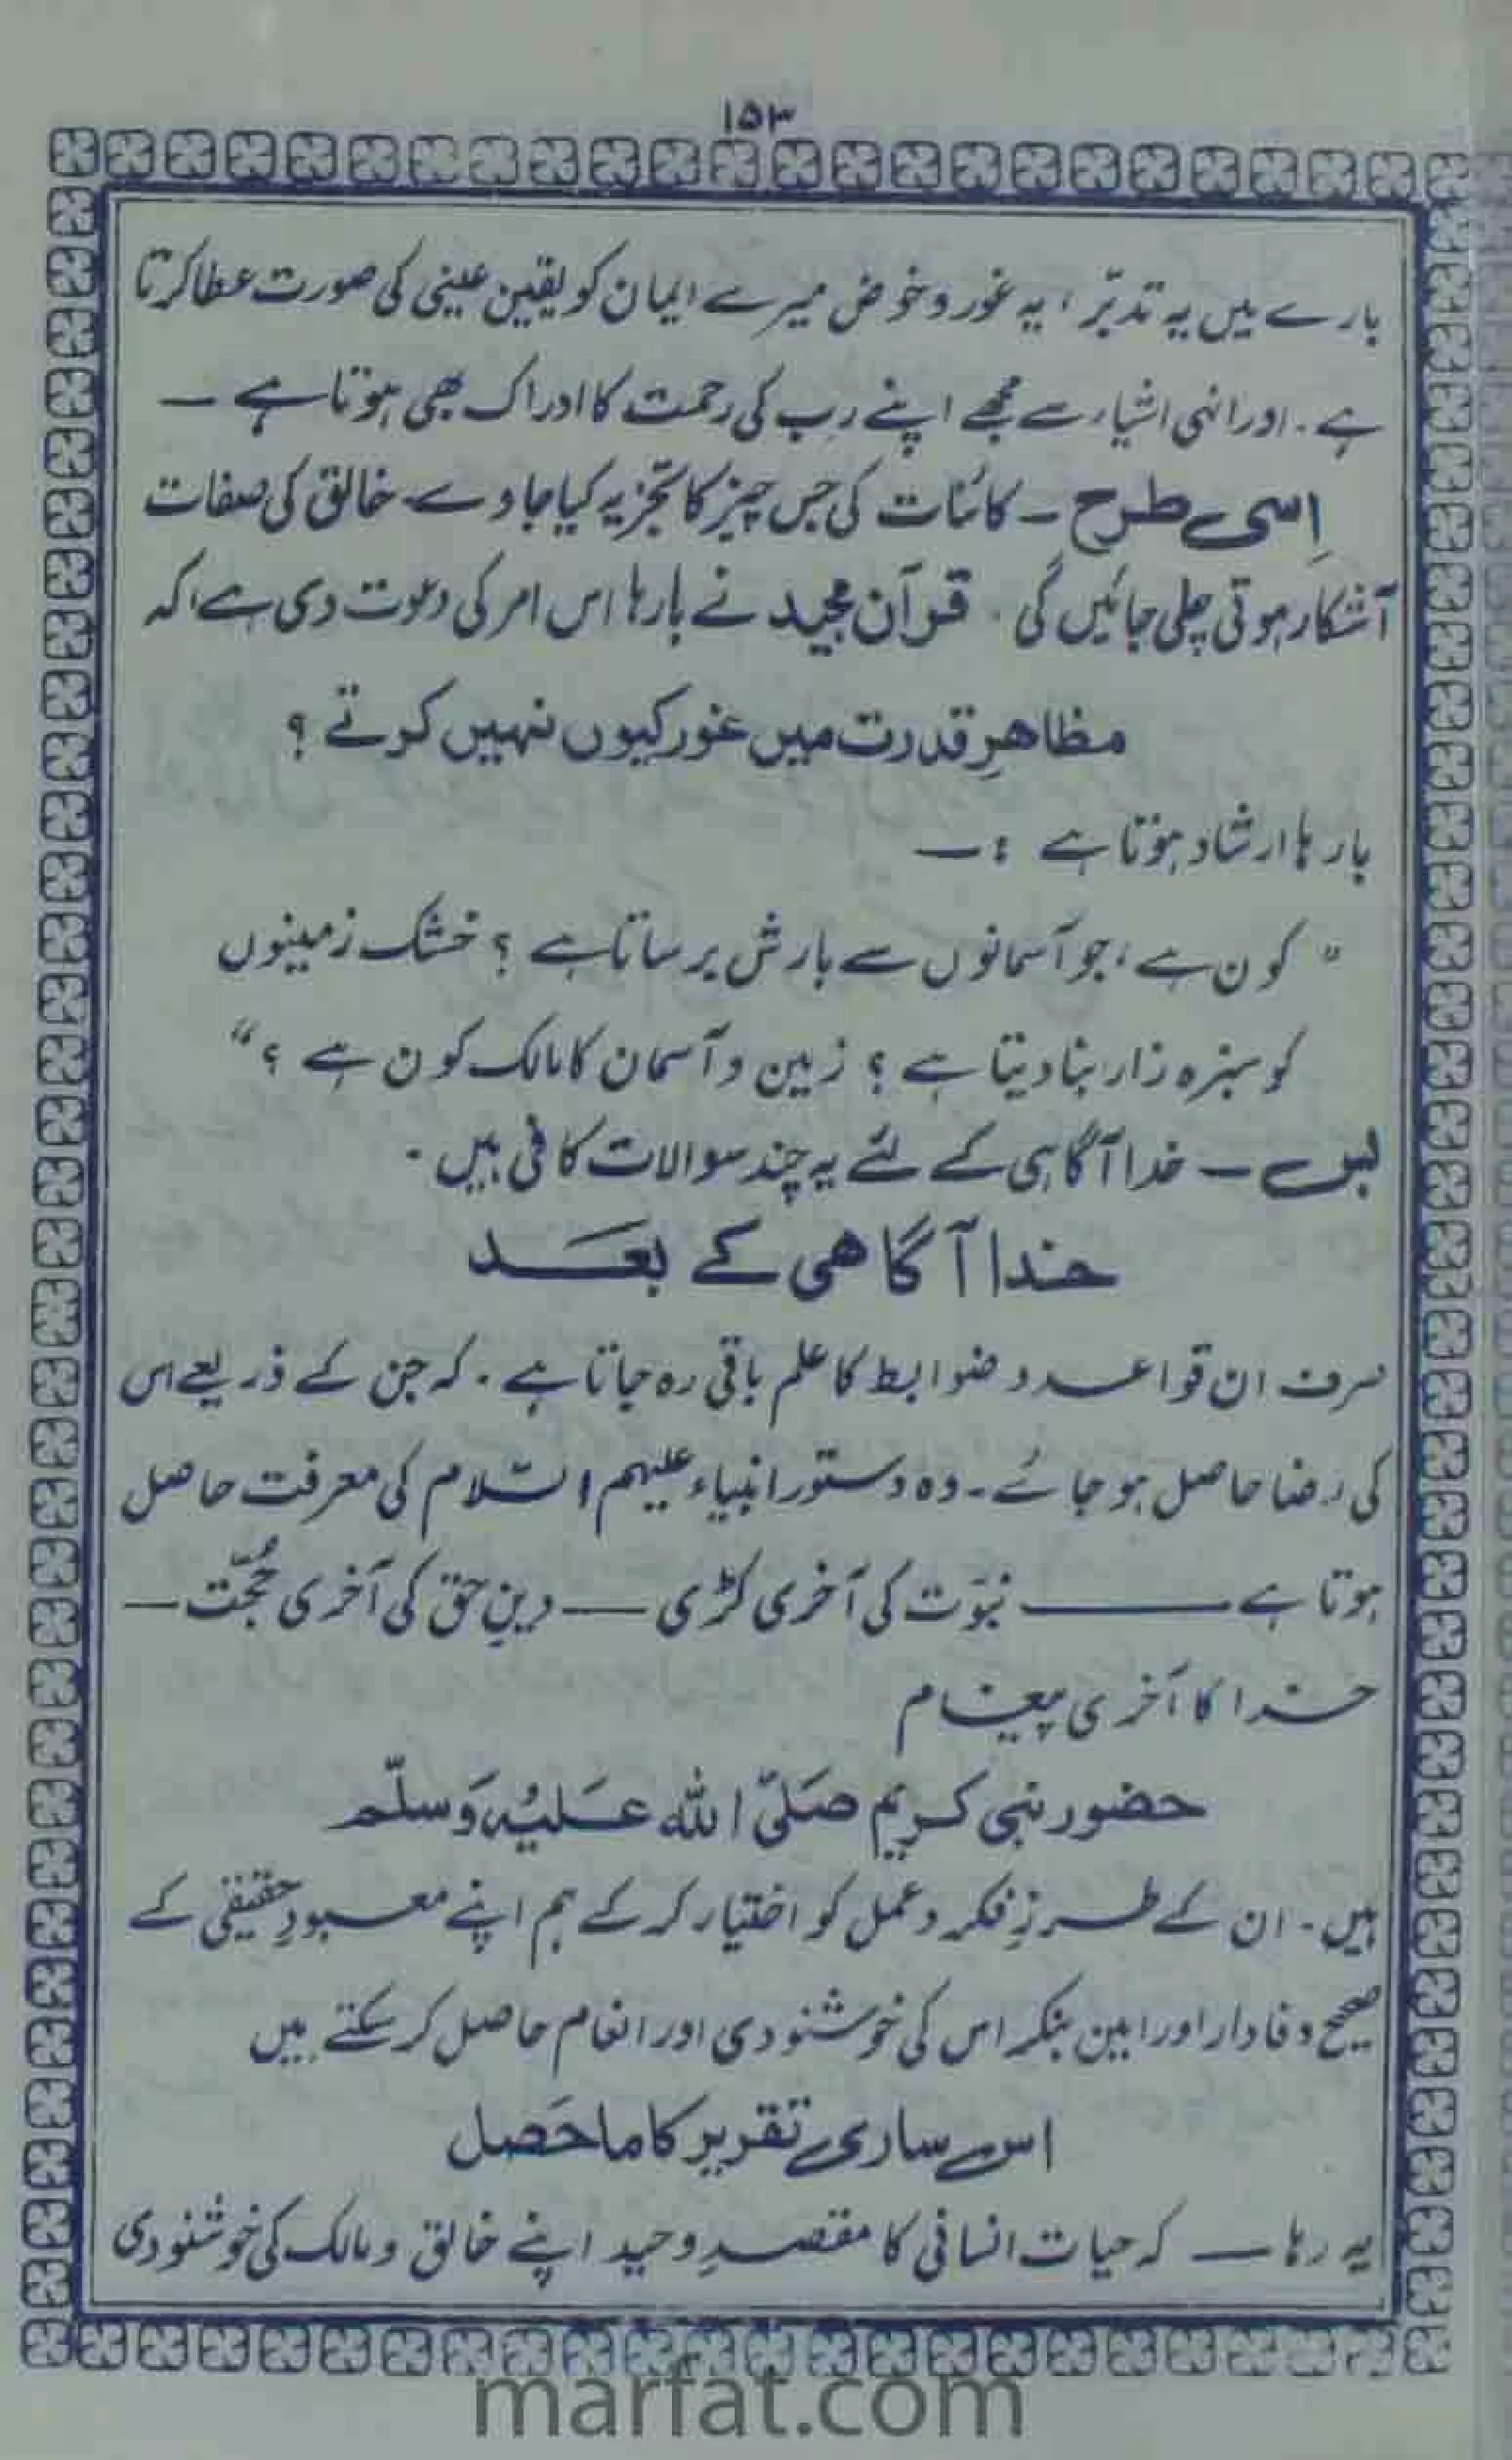 ۱۵۳
بارے میں یہ تدبّر ، یہ غور و خوض میرے ایمان کو یقین عینی کی صورت عطا کرتا
ہے ۔ اور انہی اشیاء سے مجھے اپنے رب کی رحمت کا ادراک بھی ہوتا ہے ۔
اِسی طرح ۔ کائنات کی جس چیز کا تجزیہ کیا جاوے ۔ خالق کی صفات
آشکار ہوتی چلی جائیں گی ۔ قرآن مجید نے بارہا اس امر کی دعوت دی ہے کہ
مظاہرِ قدرت میں غور کیوں نہیں کرتے ؟
بارہا ارشاد ہوتا ہے :۔
" کون ہے ، جو آسمانوں سے بارش برساتا ہے ؟ خشک زمینوں
کو سبزہ زار بنا دیتا ہے ؟ زمین و آسمان کا مالک کون ہے ؟ "
بس ۔ خدا آگاہی کے لئے یہ چند سوالات کافی ہیں ۔
خدا آگاہی کے بعد
صرف ان قواعد و ضوابط کا علم باقی رہ جاتا ہے ۔ کہ جن کے ذریعے اس
کی رضا حاصل ہو جائے ۔ وہ دستور انبیاء علیہم السّلام کی معرفت حاصل
ہوتا ہے ——— نبوّت کی آخری کڑی — دینِ حق کی آخری حُجّت —
خدا کا آخری پیغام
حضور نبی کریم صَلّی اللہ عَلَیْہِ وَسلّم
ہیں ۔ ان کے طرزِ فکر و عمل کو اختیار کر کے ہم اپنے معبودِ حقیقی کے
صحیح وفادار اور امین بنکر اس کی خوشنودی اور انعام حاصل کر سکتے ہیں
اس ساری تقریر کا ماحَصل
یہ رہا — کہ حیات انسانی کا مقصدِ وحید اپنے خالق و مالک کی خوشنودی
marfat.com